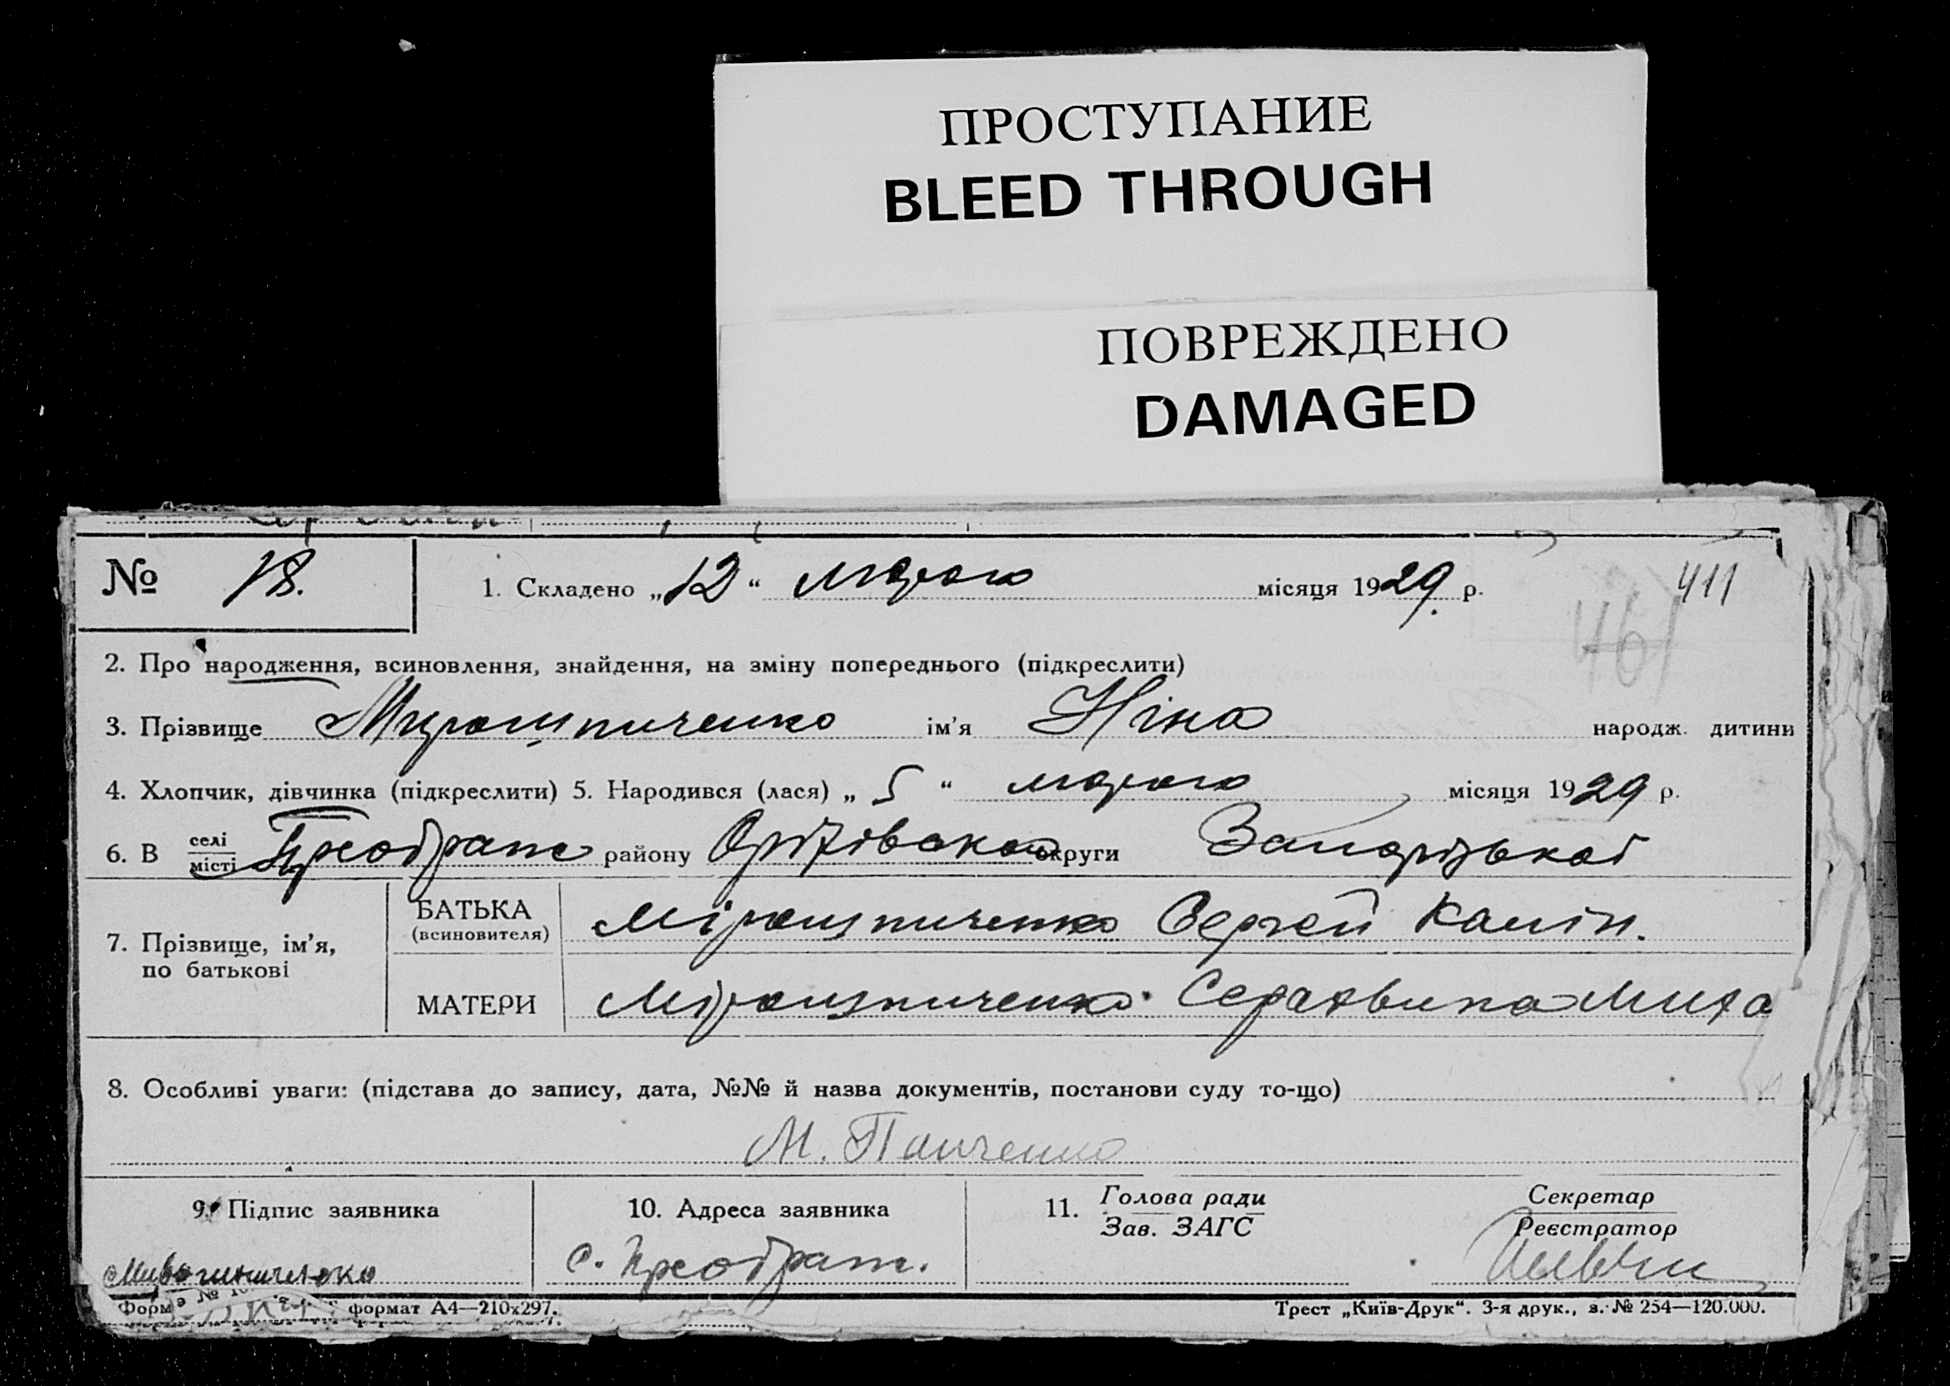 ПРОСТУПАНИЕ
BLEED THROUGH
ПОВРЕЖДЕНО
DAMAGED
№ 18. 1. Складено „12“ марта місяця 1929 р. 411
461
2. Про народження, всиновлення, знайдення, на зміну попереднього (підкреслити)
3. Прізвище Мирошниченко ім’я Ніна народж. дитини
4. Хлопчик, дівчинка (підкреслити) 5. Народився (лася) „5“ марта місяця 1929 р.
6. В селі
місті Преображ району Оріхівского округи Запорізької
7. Прізвище, ім’я,
по батькові
БАТЬКА
(всиновителя) Мірошниченко Сергей Калін.
МАТЕРИ Мірошниченко Миха
8. Особливі уваги: (підстава до запису, дата, №№ й назва документів, постанови суду то-що)
М. Панченко
9. Підпис заявника 10. Адреса заявника 11. Голова ради
Зав. ЗАГС Секретар
Реєстратор
Мирошниченко с. Преображ.
Форма № формат А4—210х297. Трест „Київ-Друк“. 3-я друк., з. № 254—120.000.